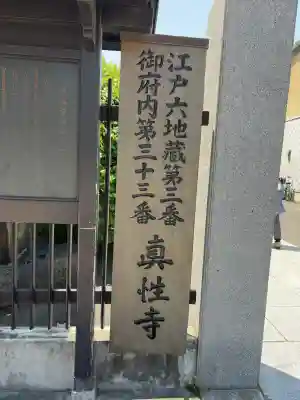 江戸六地蔵第三番
御府内第三十三番
眞性寺